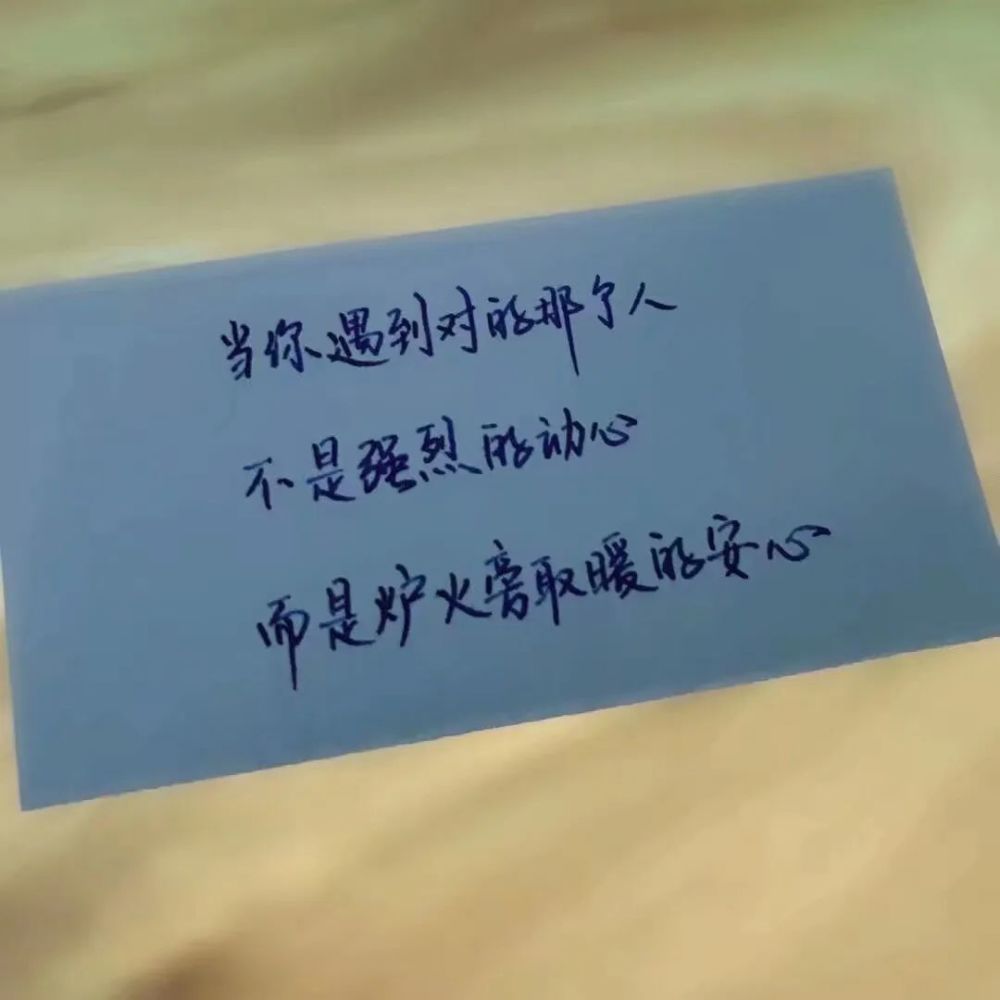 当你遇到对的那个人
不是强烈的动心
而是炉火旁取暖的安心